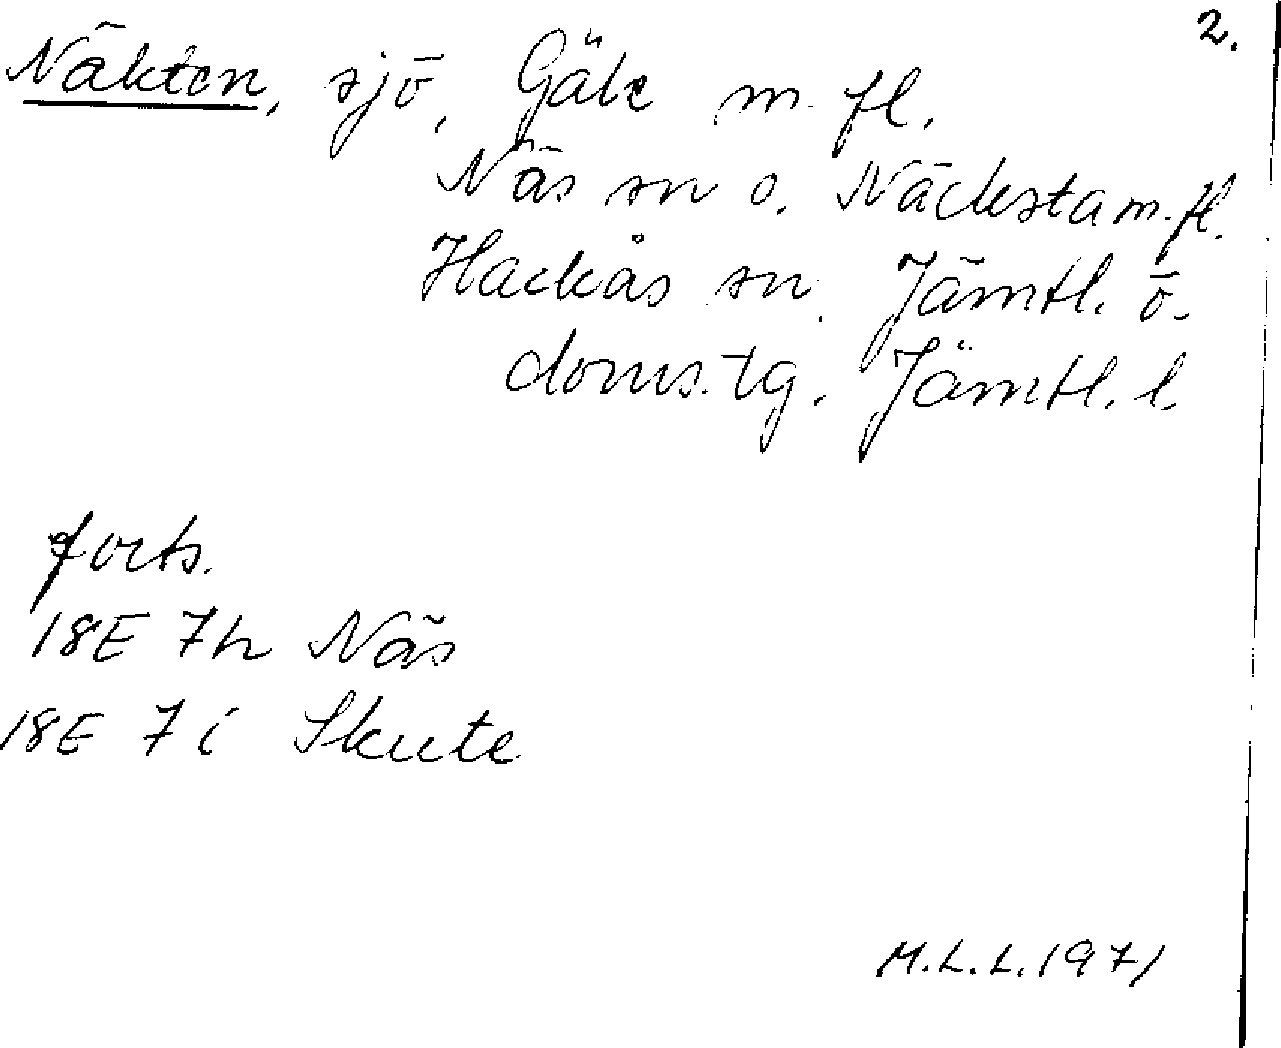 2.
Näkten, sjö, Gäle m. fl.
Näs sn o. Näcksta m. fl.
Hackås sn. Jämtl. ö.
doms. tg. Jämtl. l.
forts.
18E 7h Näs
18E 7i Skute
M.L.L. 1971